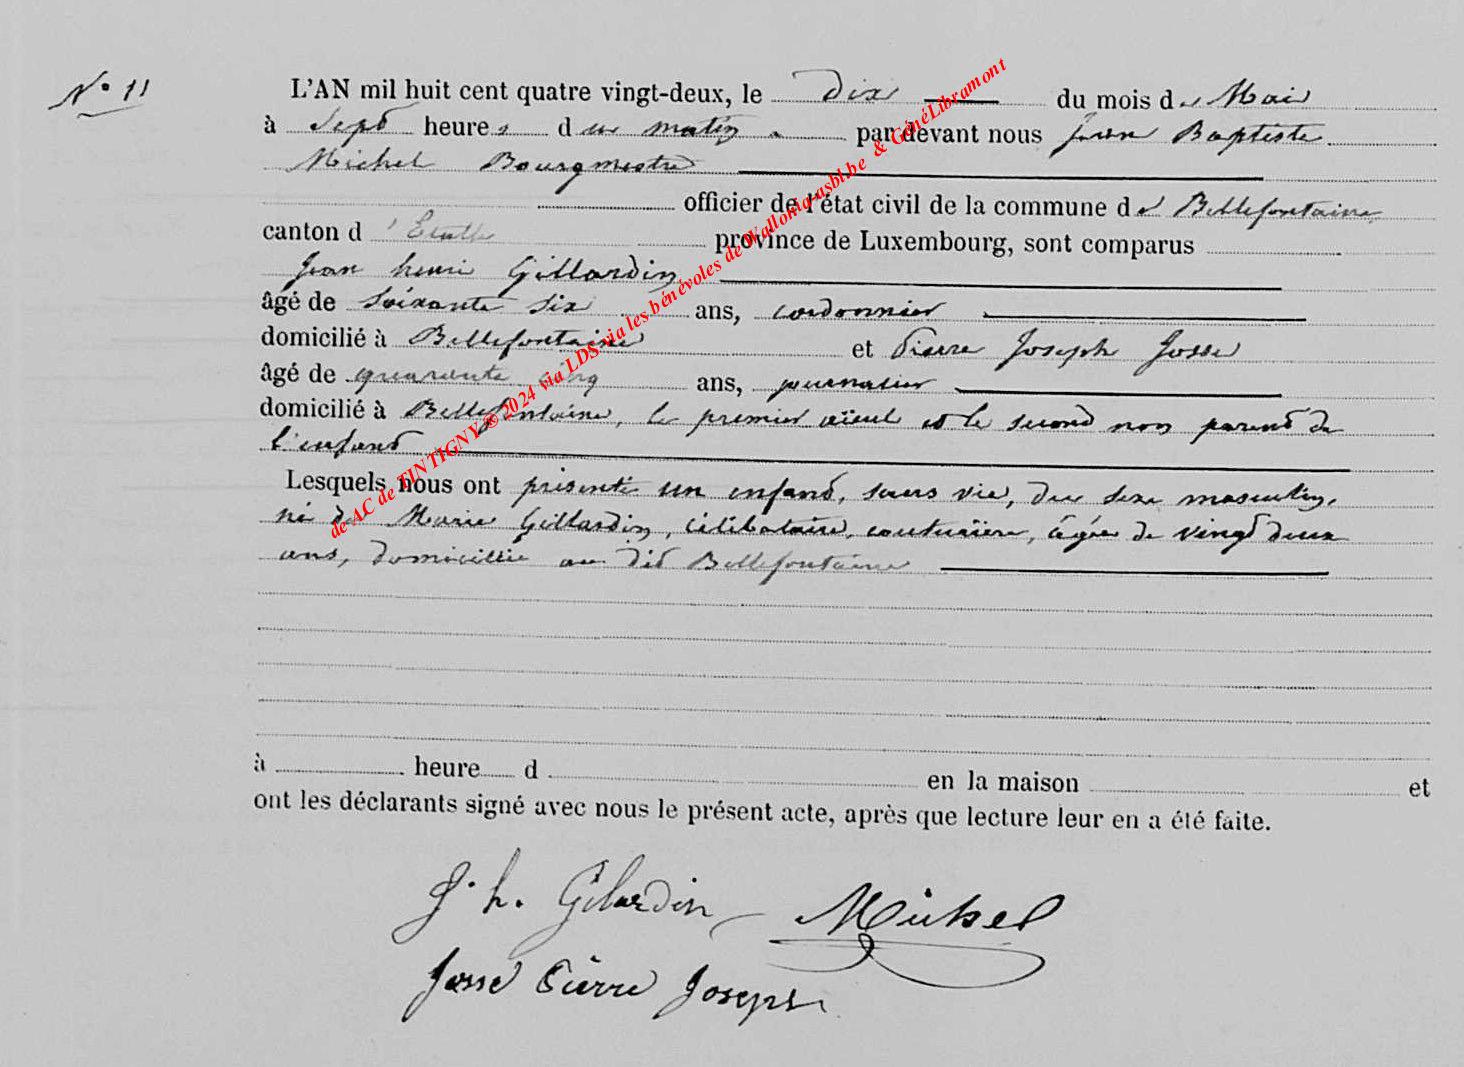 N° 11
L'AN mil huit cent quatre vingt-deux, le dix du mois de Mai
à Sept heures du matin par devant nous Jean Baptiste
Michel Bourgmestre
officier de l'état civil de la commune de Bellefontaine,
canton d'Etalle province de Luxembourg, sont comparus
Jean henri Gillardin
âgé de Soixante six ans, cordonnier
domicilié à Bellefontaine et Pierre Joseph Josse
âgé de quarante cinq ans, journalier
domicilié à Bellefontaine, le premier aïeul et le second non parent de
l'enfant
Lesquels nous ont présenté un enfant, sans vie, du sexe masculin,
né de Marie Gillardin, célibataire, couturière, âgée de vingt deux
ans, domiciliée au dit Bellefontaine
à heure d en la maison et
ont les déclarants signé avec nous le présent acte, après que lecture leur en a été faite.
J. h. Gilardin Michel
Josse Pierre Joseph
de AC de TINTIGNY © 2024 via LDS via les bénévoles de Wallonia-asbl.be & GénéLibramont